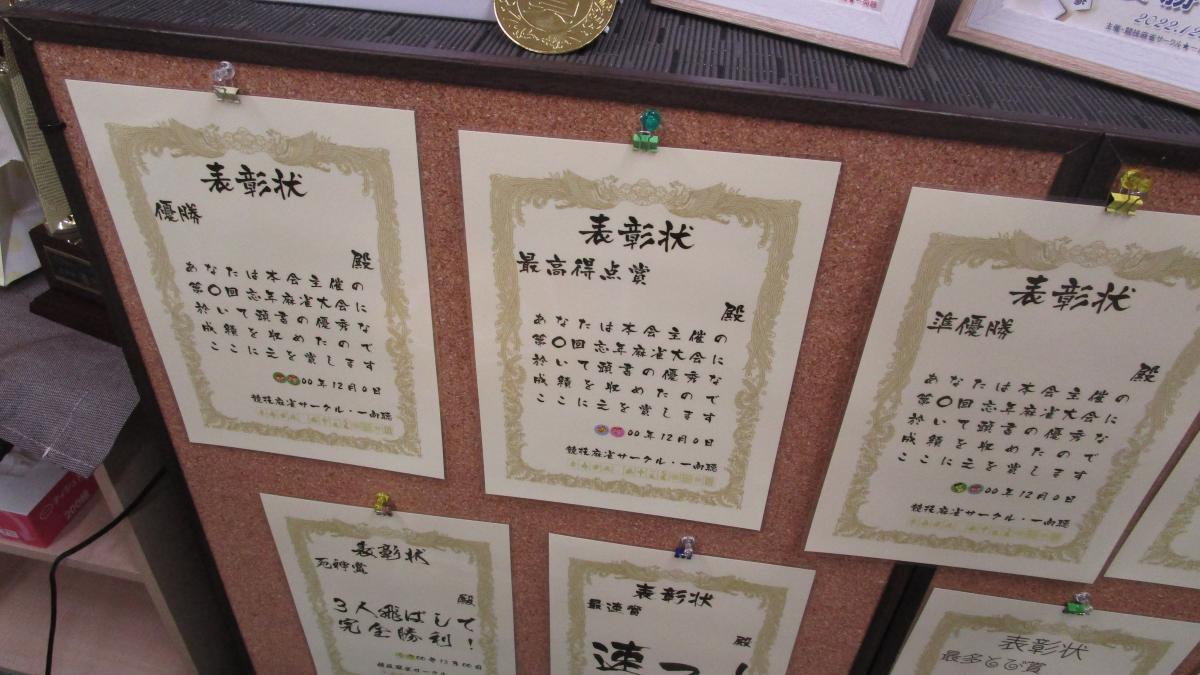 2022.12
主催・競技麻雀サークル★一
表彰状
優勝
殿
あなたは本会主催の
第〇回忘年麻雀大会に
於いて頭書の優秀な
成績を収めたので
ここに之を賞します
00年12月0日
競技麻雀サークル・一向聴
表彰状
最高得点賞
殿
あなたは本会主催の
第〇回忘年麻雀大会に
於いて頭書の優秀な
成績を収めたので
ここに之を賞します
00年12月0日
競技麻雀サークル・一向聴
表彰状
準優勝
殿
あなたは本会主催の
第〇回忘年麻雀大会に
於いて頭書の優秀な
成績を収めたので
ここに之を賞します
00年12月0日
競技麻雀サークル・一向聴
表彰状
死神賞
殿
3人飛ばして
完全勝利!
00年12月00日
競技麻雀サークル・一向聴
表彰状
最速賞
殿
速
表彰状
最多とび賞